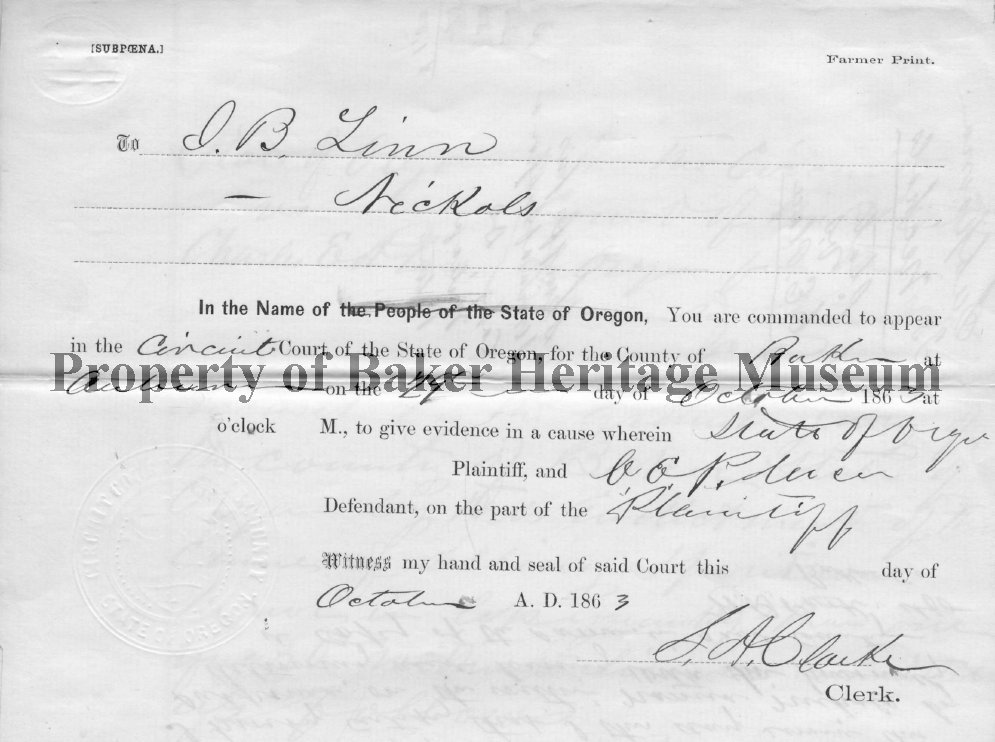 [SUBPŒNA.]
Farmer Print.
To J. B. Linn
— Nickols
In the Name of the People of the State of Oregon, You are commanded to appear
in the Circuit Court of the State of Oregon, for the County of Baker at
Auburn on the 27 day of October 1863 at
Property of Baker Heritage Museum
o'clock M., to give evidence in a cause wherein State of Oregon
Plaintiff, and C. E.
Defendant, on the part of the Plaintiff
Witness my hand and seal of said Court this day of
October A. D. 1863
S. A. Clarke
Clerk.
STATE OF OREGON